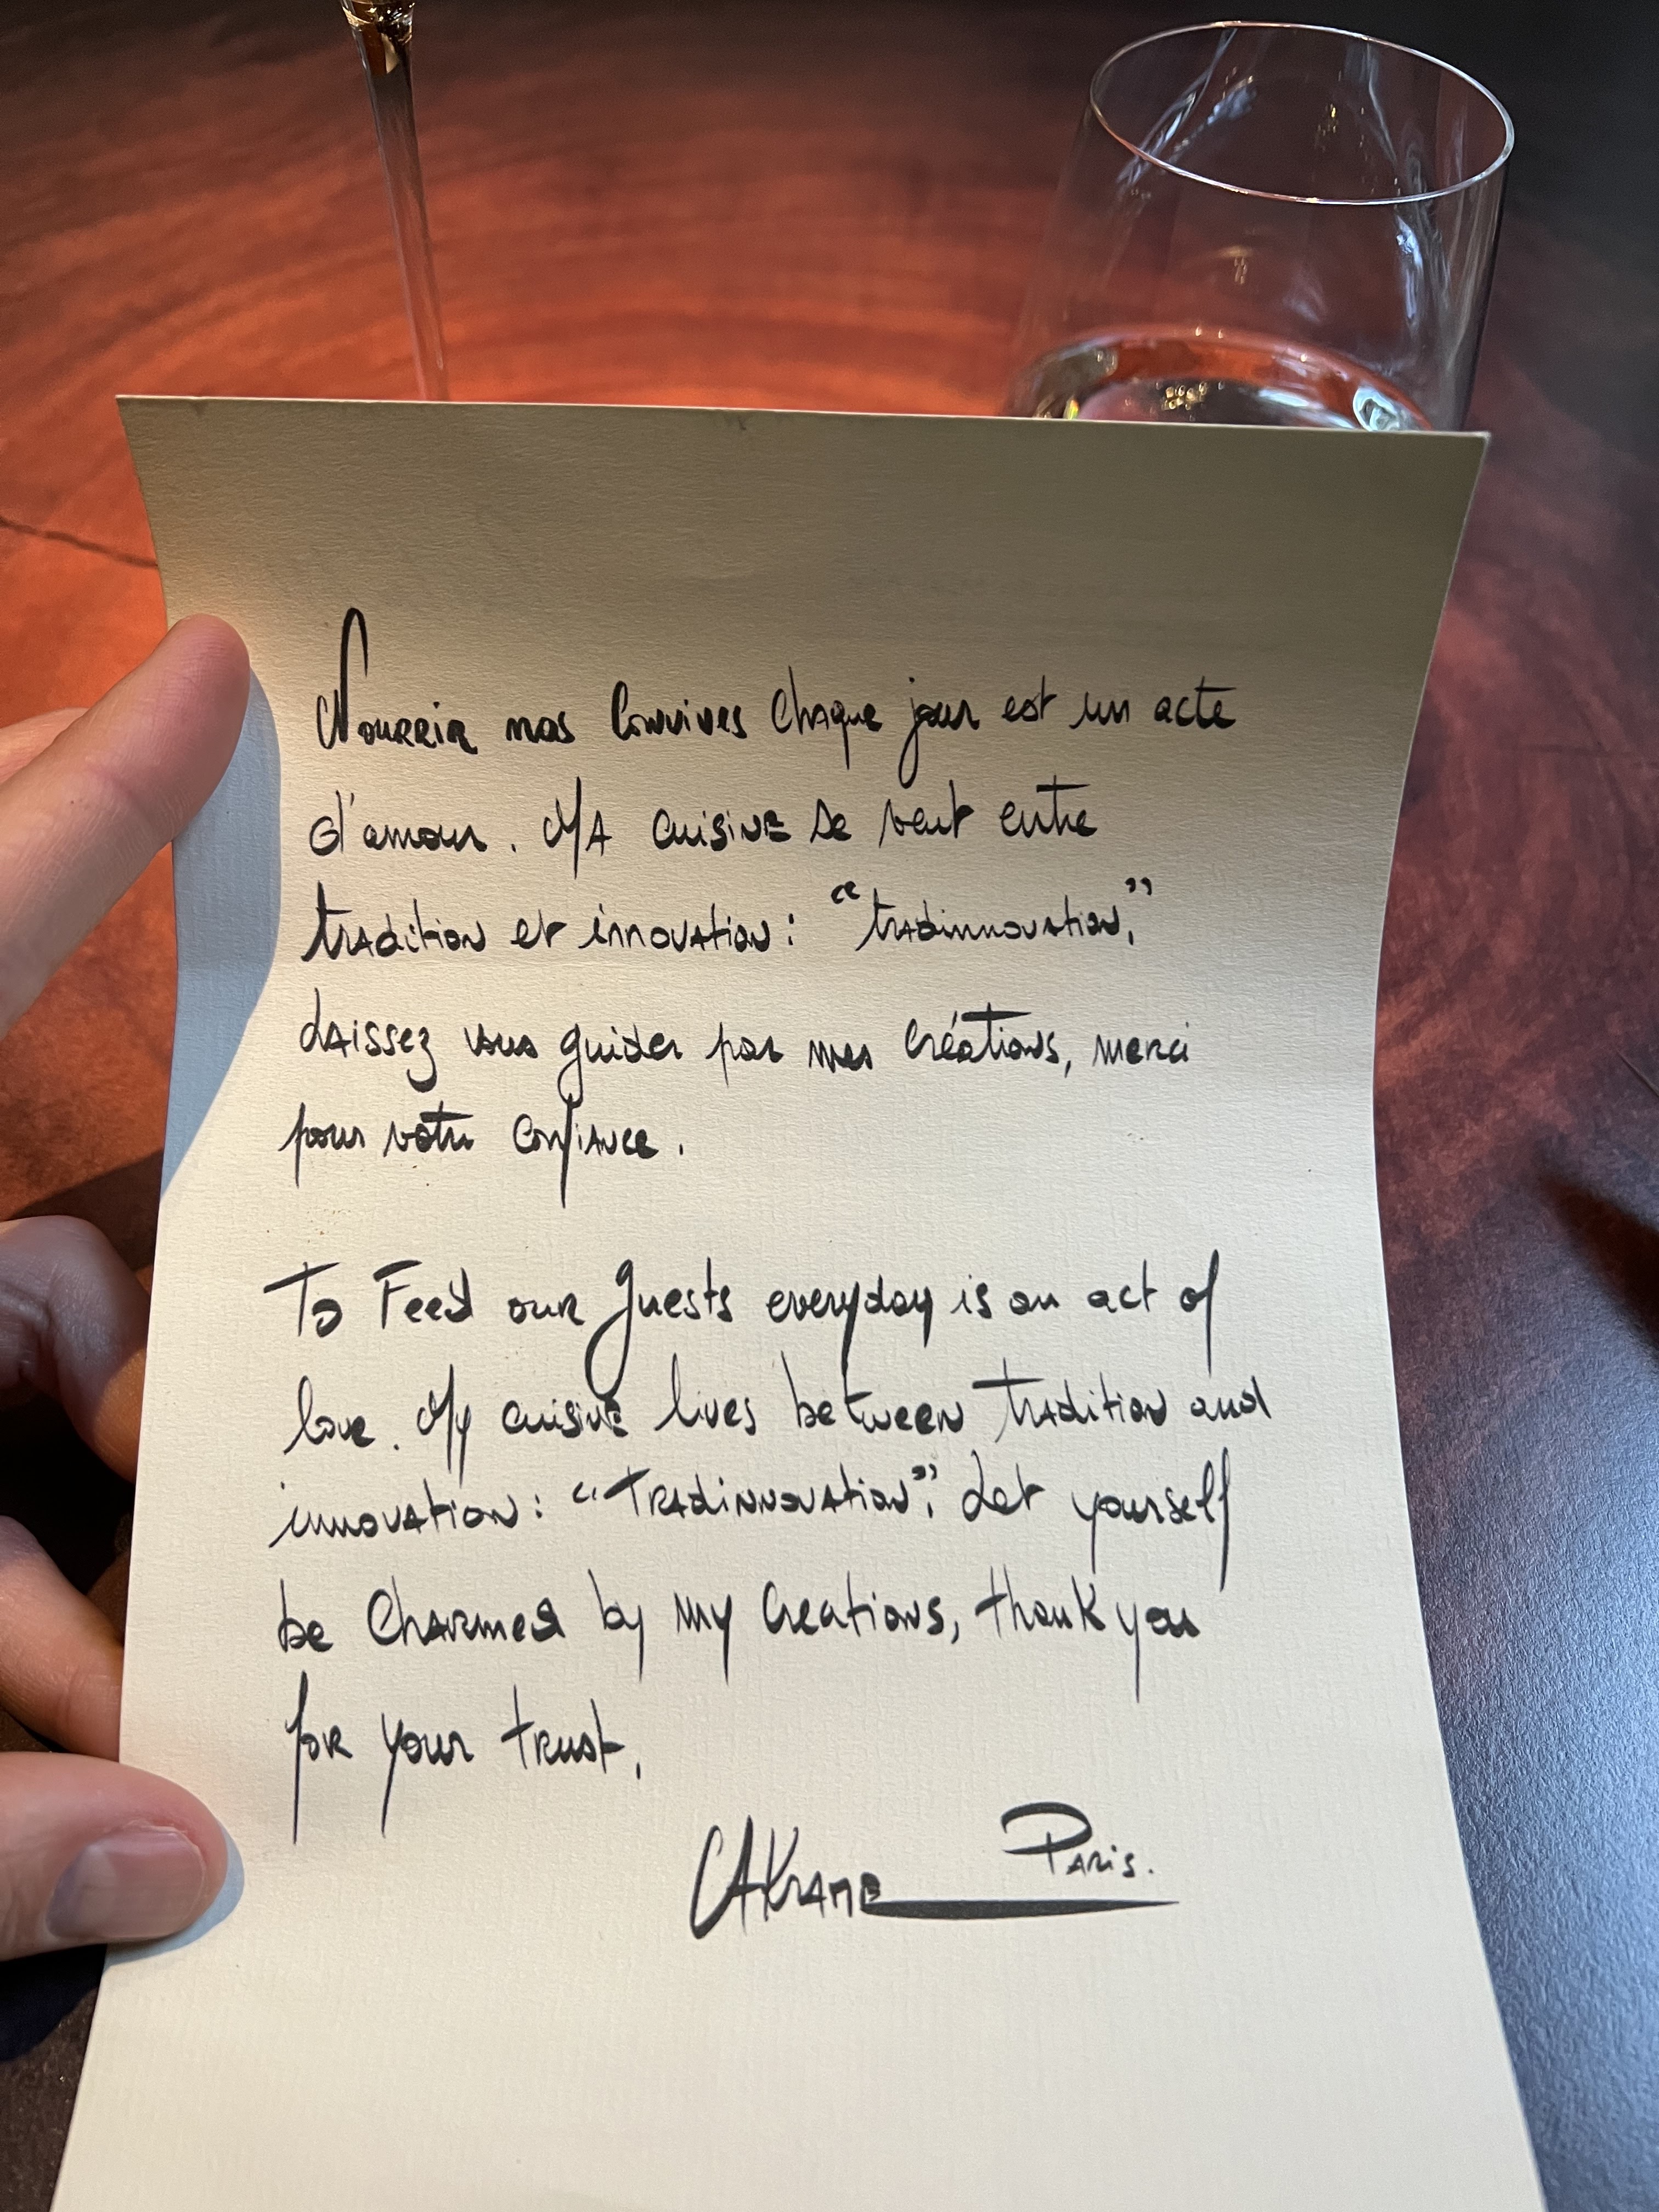 Nourrir nos convives chaque jour est un acte
d'amour. Ma cuisine se veut entre
tradition et innovation : "tradinnovation",
Laissez vous guider par mes créations, merci
pour votre confiance.
To Feed our guests everyday is an act of
love. My cuisine lives between tradition and
innovation : "Tradinnovation". Let yourself
be charmed by my creations, thank you
for your trust,
AKrame Paris.